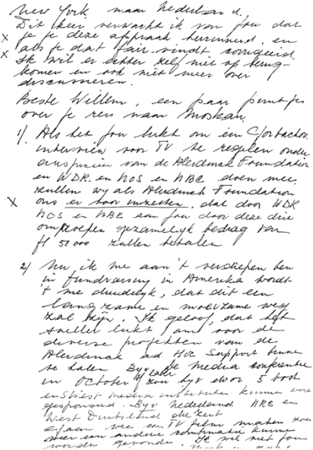 New York naar Nederland.
Dit keer verwacht ik van jou dat
x je je deze afspraak herinnert en
x als je dat fair vindt corrigeert.
Ik wil er echter zelf niet op terug-
komen en ook niet meer over
discussieren.
Beste Willem, een paar puntjes
over je reis naar Moskou.
1) Als het jou lukt om een Gorbachov
interview voor TV te regelen onder
auspicien van de Alerdinck Foundation
en WDR en NOS en NBC doen mee
zullen wij als Alerdinck Foundation
x ons er voor inzetten, dat door WDR
NOS en NBC aan jou door deze drie
omroepen gezamelijk bedrag van
fl 50 000 zullen betalen
2) Nu, ik me aan't verdiepen ben
in fundraising in Amerika wordt
't me duidelijk, dat dit een
langzame en moeizame weg
zal zijn. Ik geloof, dat het
sneller lukt, om voor de
diverse projekten van de
Alerdinck ad Hoc support
te halen. Bijv. de media conferentie
in October zou bijv door 5 Oost
en 5 West media instituten kunnen
gesponsord. Bijv Nederland NRC en
West Duitsland die Zeit
een TV
een andere combinatie
worden gevonden.